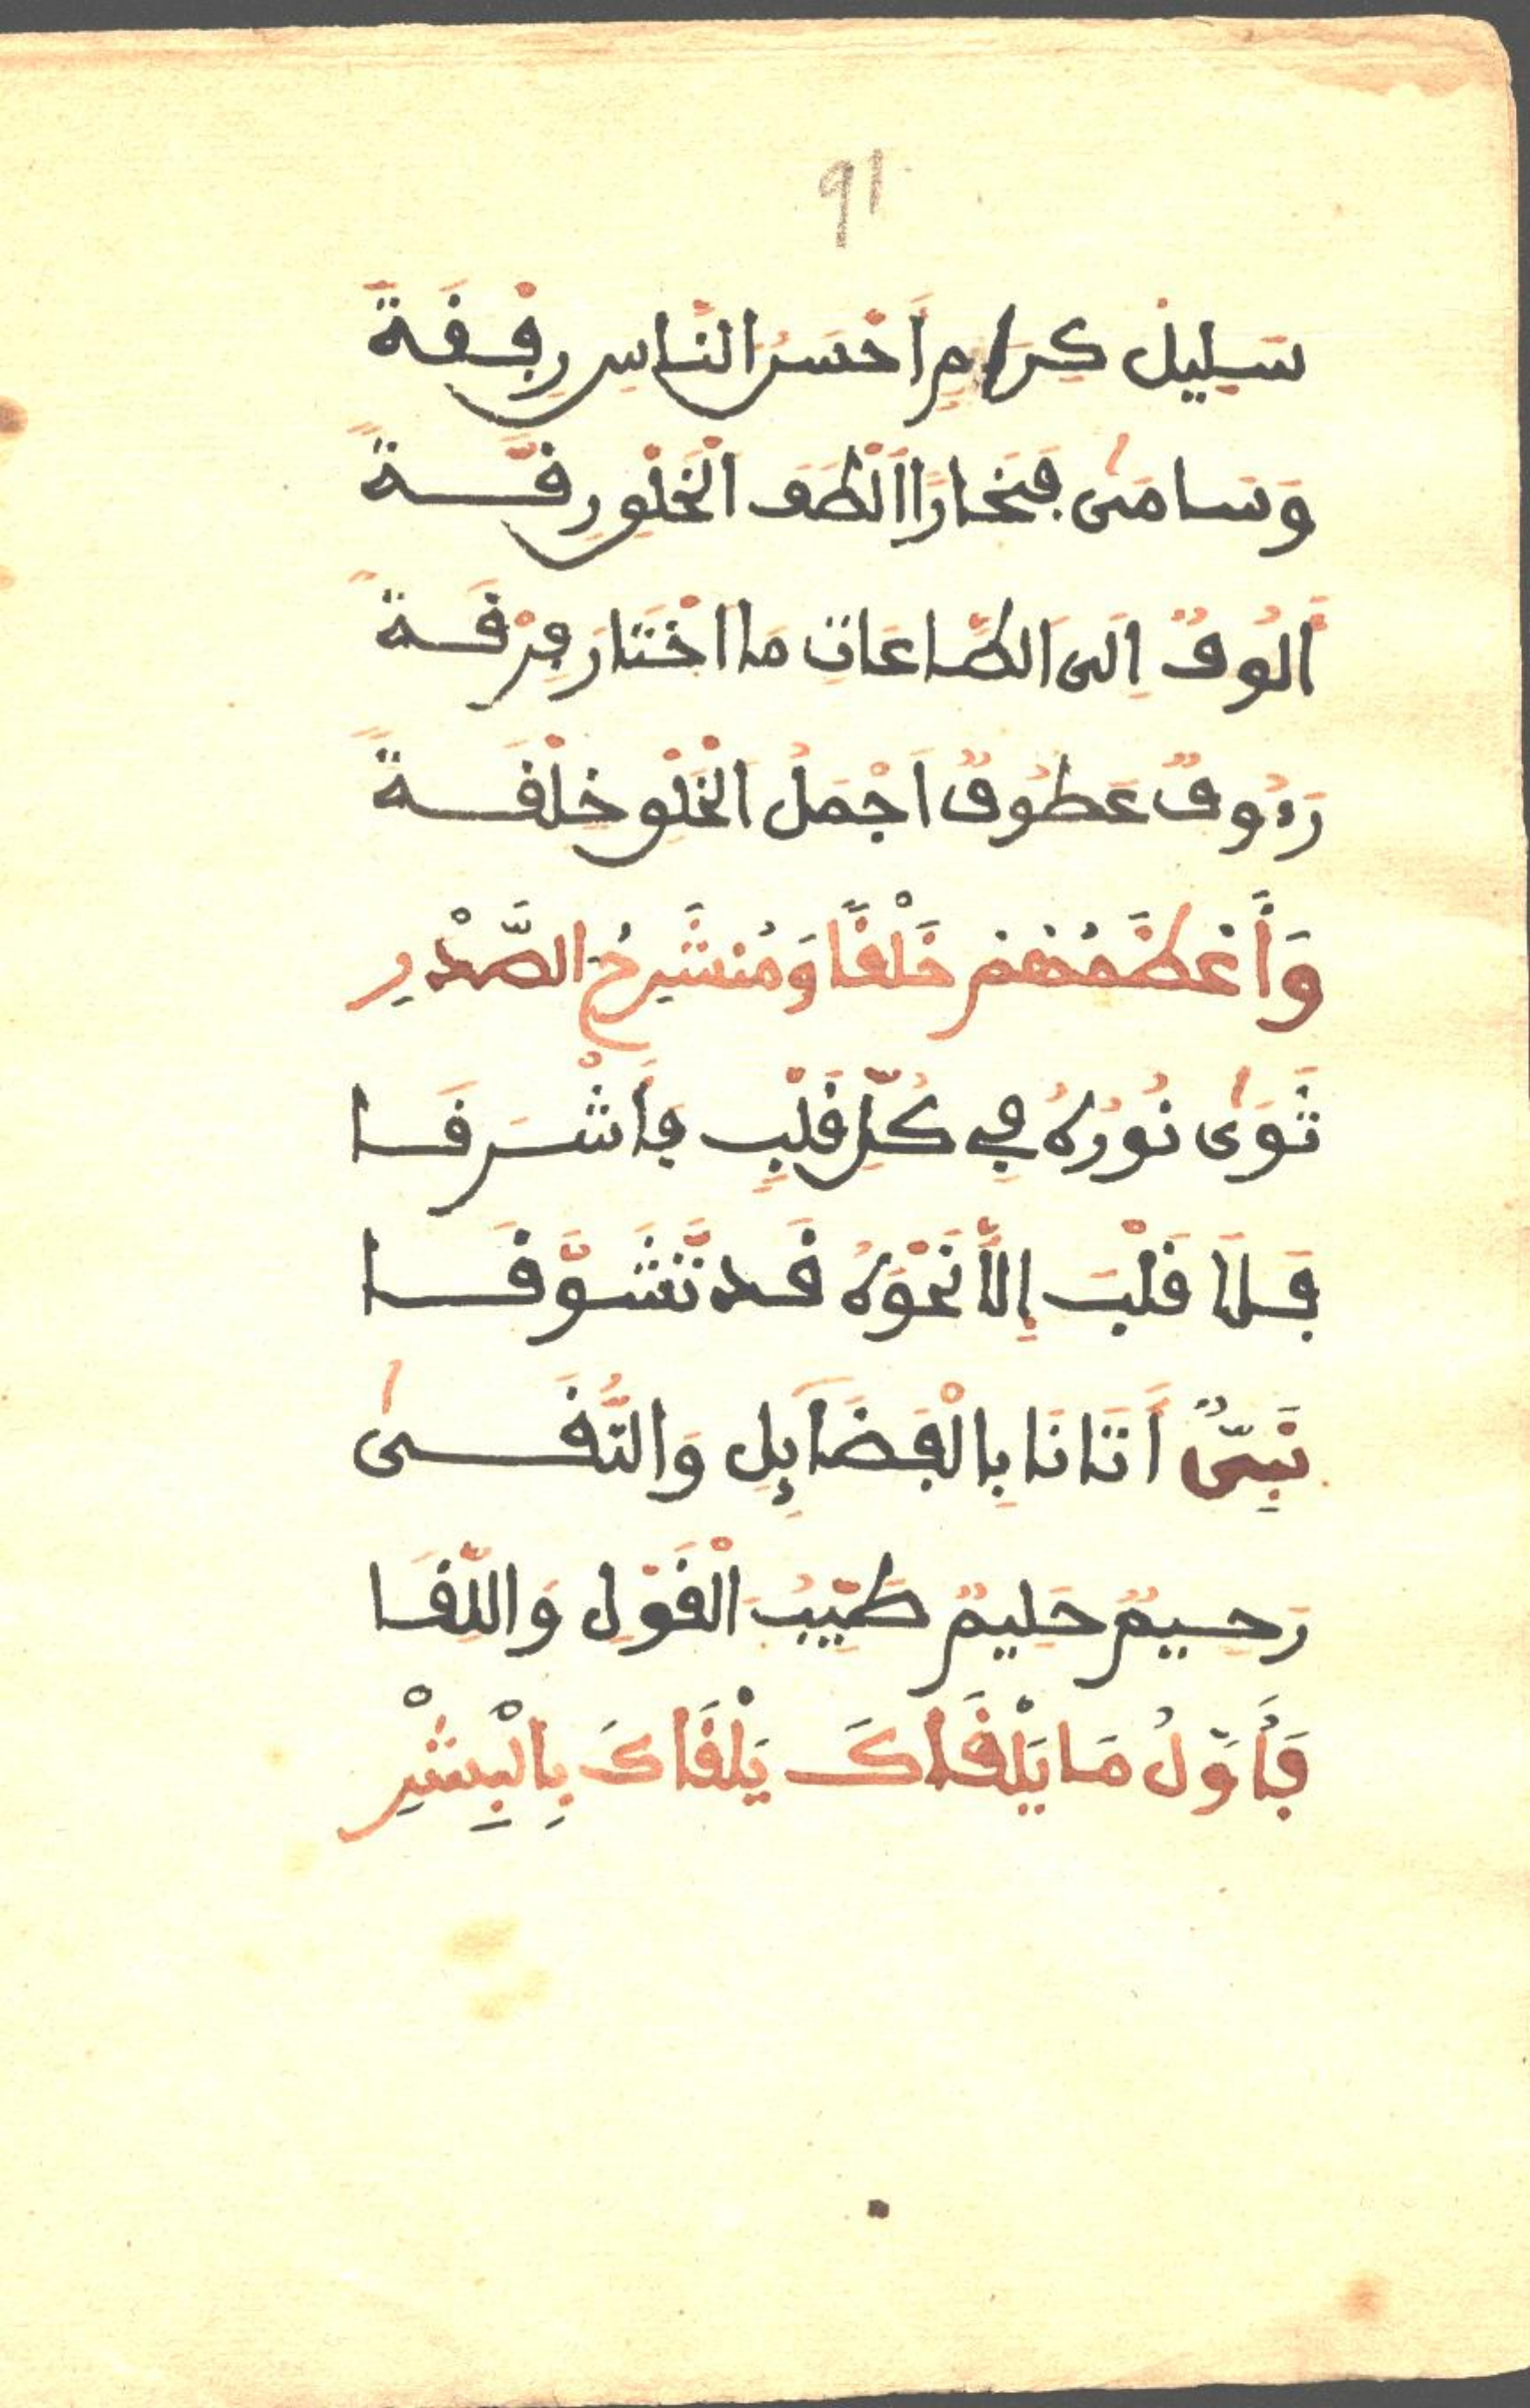 91
سَلِيلُ كِرَامٍ اَحْسَنُ النَّاسِ رِفْقَةً
وَسَامَى فِخَارًا اَلْطَفَ الْخَلْقِ رِقَّةً
اَلُوفٌ اِلَى الطَّاعَاتِ مَا اخْتَارَ فِرْقَةً
رَءُوفٌ عَطُوفٌ اَجْمَلُ الْخَلْقِ خِلْقَةً
وَأَعْظَمُهُمْ خَلْقًا وَمُنْشَرِحُ الصَّدْرِ
ثَوَى نُورُهُ فِي كُلِّ قَلْبٍ فَأَشْرَقَا
فَلَا قَلْبَ إِلَّا نَحْوَهُ قَد تَّشَوَّقَا
نَبِيٌّ أَتَانَا بِالْفَضَآئِلِ وَالتُّقَى
رَحِيمٌ حَلِيمٌ طَيِّبُ الْقَوْلِ وَاللِّقَا
فَأَوَّلُ مَا يَلْقَاكَ يَلْقَاكَ بِالْبِشْرِ